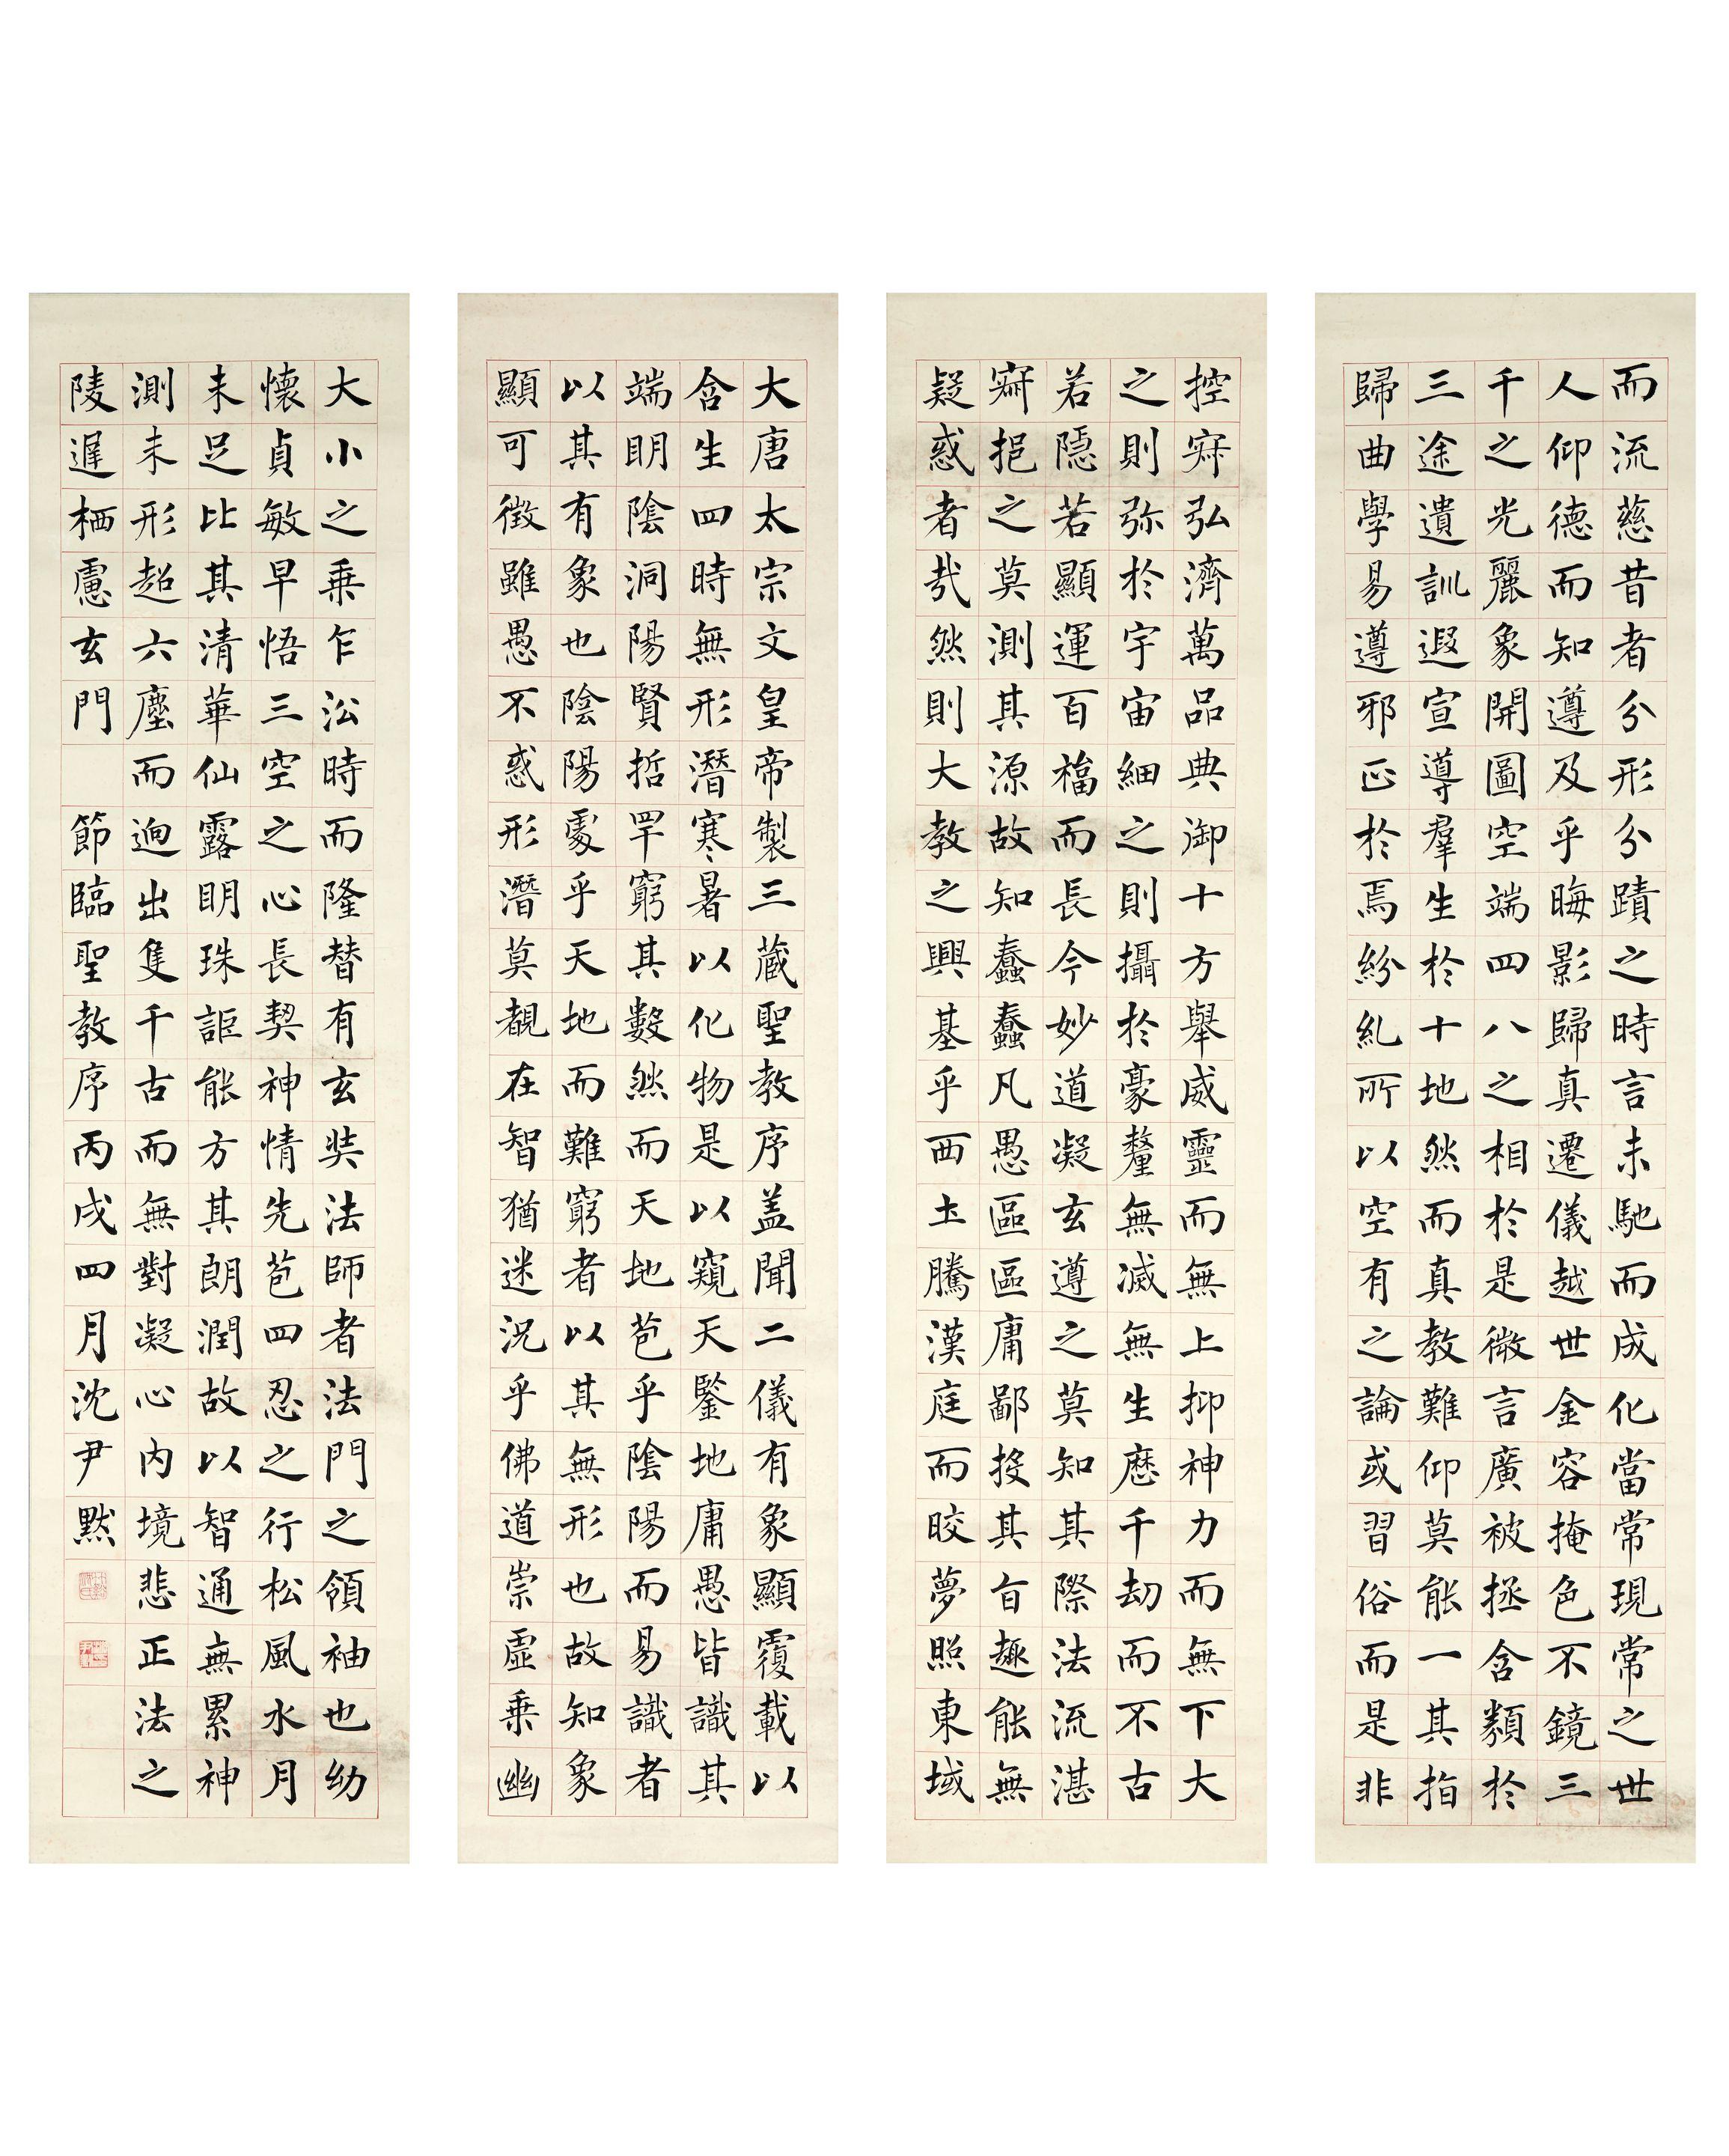 大唐太宗文皇帝製三藏聖教序盖聞二儀有象顯覆載以
含生四時無形潛寒暑以化物是以窺天鑒地庸愚皆識其
端明陰洞陽賢哲罕窮其數然而天地苞乎陰陽而易識者
以其有象也陰陽處乎天地而難窮者以其無形也故知象
顯可徵雖愚不惑形潛莫覩在智猶迷況乎佛道崇虛乗幽
控寂弘濟萬品典御十方舉威靈而無上抑神力而無下大
之則弥於宇宙細之則攝於豪釐無滅無生歷千劫而不古
若隱若顯運百福而長今妙道凝玄遵之莫知其際法流湛
寂挹之莫測其源故知蠢蠢凡愚區區庸鄙投其旨趣能無
疑惑者哉然則大教之興基乎西土騰漢庭而皎夢照東域
而流慈昔者分形分蹟之時言未馳而成化當常現常之世
人仰德而知遵及乎晦影歸真遷儀越世金容掩色不鏡三
千之光麗象開圖空端四八之相於是微言廣被拯含類於
三途遺訓遐宣導羣生於十地然而真教難仰莫能一其指
歸曲學易遵邪正於焉紛糺所以空有之論或習俗而是非
大小之乗乍沿時而隆替有玄奘法師者法門之領袖也幼
懷貞敏早悟三空之心長契神情先苞四忍之行松風水月
未足比其清華仙露明珠詎能方其朗潤故以智通無累神
測未形超六塵而迥出隻千古而無對凝心內境悲正法之
陵遲栖慮玄門 節臨聖教序丙戌四月沈尹默